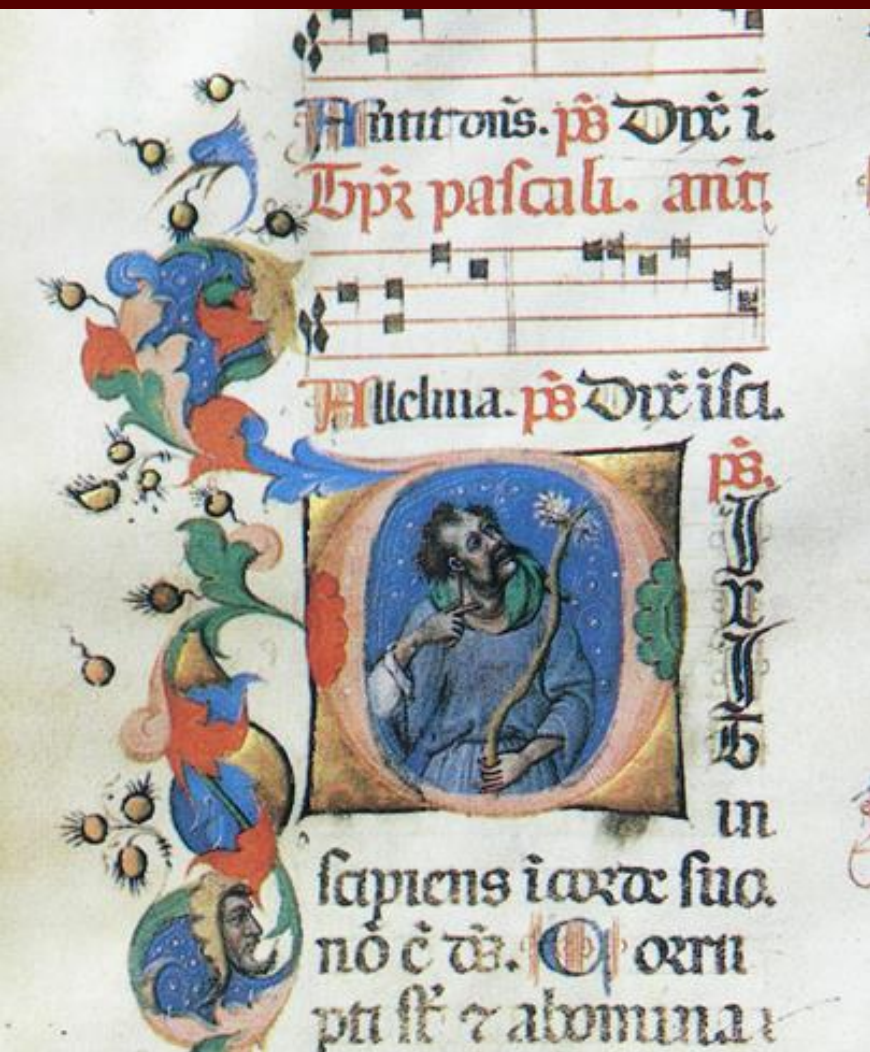 Au̓tit dn̄s. p̄s Dix̄ ī.
Tp̄r pascali. an̄t.
Alleluia. p̄s Dix̄
p̄s.
I
X
I
T
in
sipiens ī corde suo.
nō ē d̄s. Corru
pti st̄ ⁊ abomina